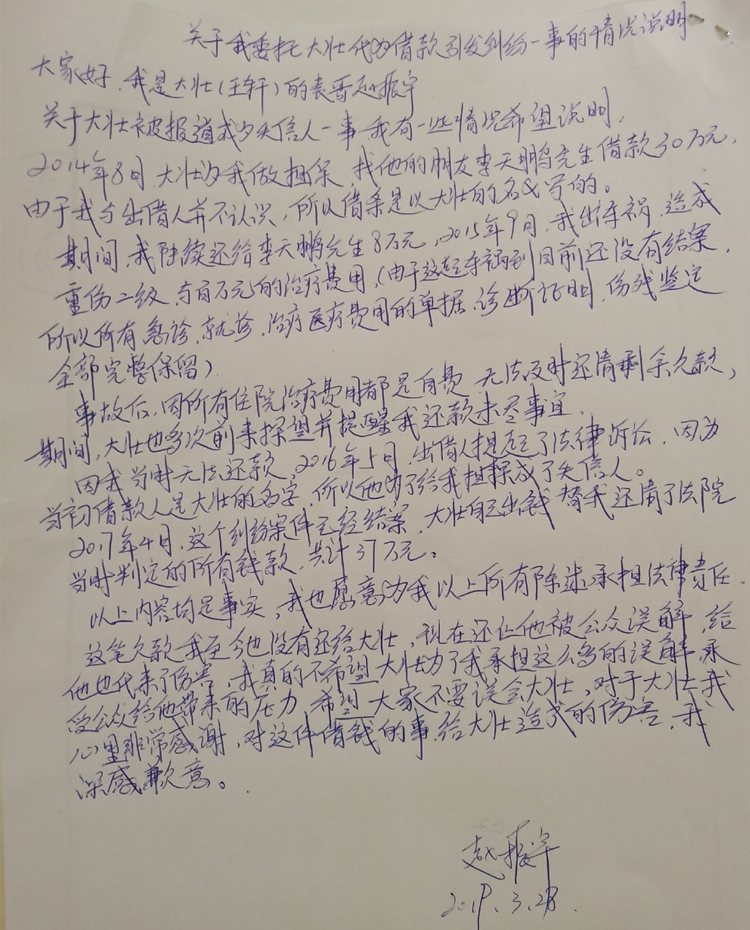 关于我委托大壮代为借款引发纠纷一事的情况说明
大家好，我是大壮(王轩)的表哥赵振宇
关于大壮被报道成为失信人一事我有一些情况希望说明，
2014年8月，大壮为我做担保，找他的朋友李天鹏先生借款30万元，
由于我与出借人并不认识，所以借条是以大壮的名义写的。
期间，我陆续还给李天鹏先生8万元，2015年9月，我出车祸，造成
重伤二级，与百万元的治疗费用，(由于这起车祸到目前还没有结案，
所以所有急诊，就诊，治疗医疗费用的单据，诊断证明，伤残鉴定
全部完整保留)
事故后，因所有住院治疗费用都是自费，无法及时还清剩余欠款，
期间，大壮也多次前来探望并提醒我还款未尽事宜，
因我当时无法还款，2016年5月，出借人提起了法律诉讼，因为
当初借款人是大壮的名字，所以他为了给我担保成了失信人。
2017年4月，这个纠纷案件已经结案，大壮自己出钱替我还清了法院
当时判定的所有钱款，共计37万元。
以上内容均是事实，我也愿意为我以上所有陈述承担法律责任，
这笔欠款我至今也没有还给大壮，现在还让他被公众误解，给
他也代来了伤害，我真的不希望大壮为了我承担这么多的误解，承
受公众给他带来的压力，希望大家不要误会大壮，对于大壮我
心里非常感谢，对这件借钱的事，给大壮造成的伤害，我
深感歉意。
赵振宇
2019.3.28.